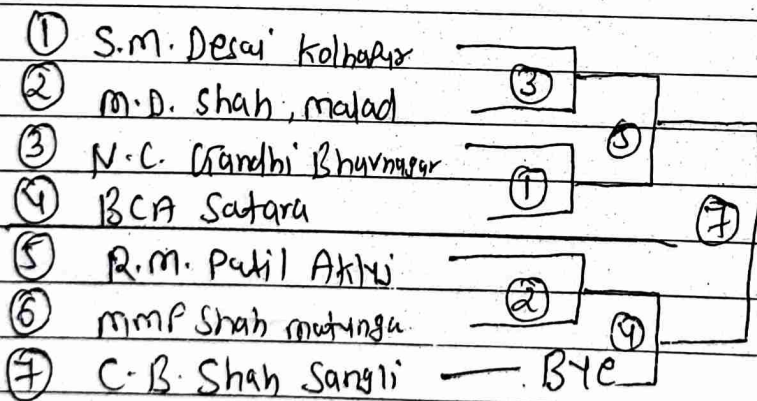 ① S.M. Desai Kolhapur
② M.D. Shah, malad ③
③ N.C. Gandhi Bhavnagar ⑤
④ BCA Satara ① ⑦
⑤ R.M. Patil
⑥ MMP Shah matunga ② ④
⑦ C.B. Shah Sangli — Bye